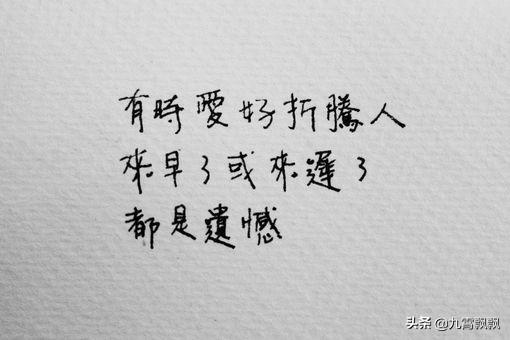 有時愛好折騰人
來早了或來遲了
都是遺憾
头条 @九霄飘飘